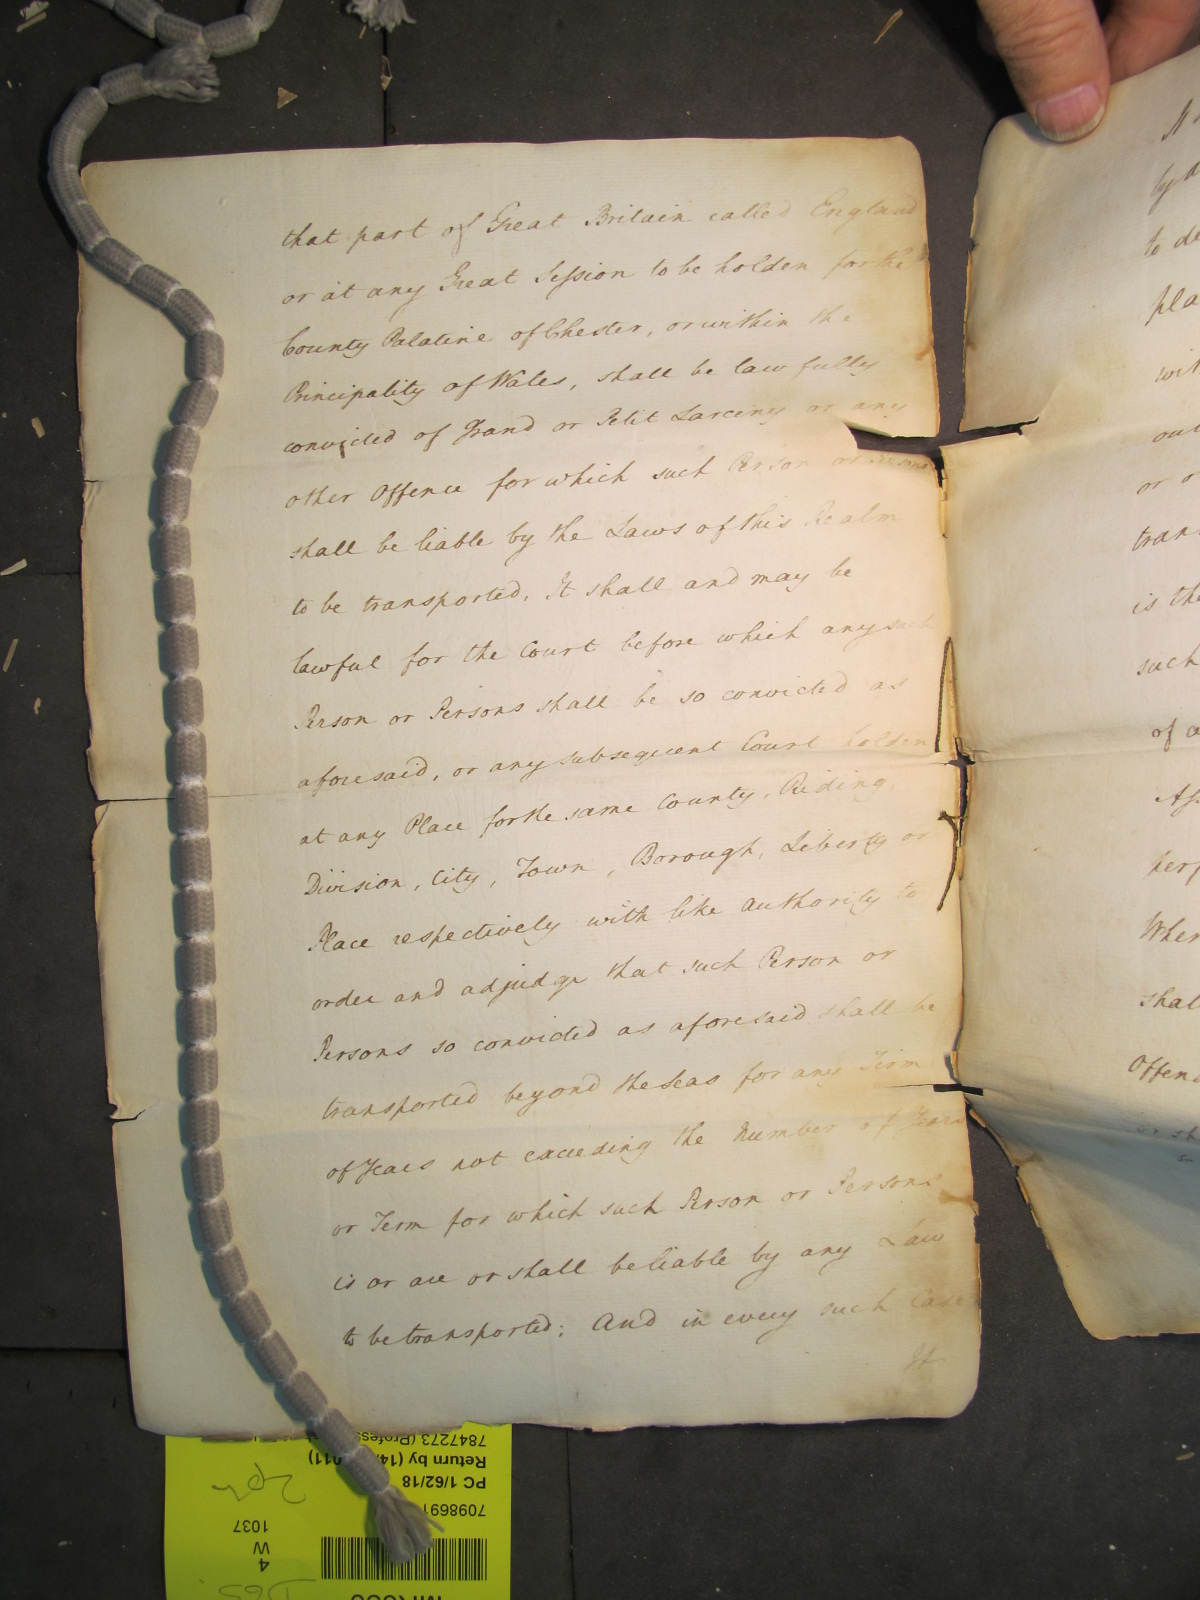 that part of Great Britain called England
or at any Great Session to be holden for the
County Palatine of Chester, or within the
Principality of Wales, shall be lawfully
convicted of Grand or Petit Larceny or any
other Offence for which such Person or Persons
shall be liable by the Laws of this Realm
to be transported, It shall and may be
lawful for the Court before which any such
Person or Persons shall be so convicted as
aforesaid, or any subsequent Court holden
at any Place for the same County, Riding,
Division, City, Town, Borough, Liberty or
Place respectively with like Authority to
order and adjudge that such Person or
Persons so convicted as aforesaid shall be
transported beyond the Seas for any Term
of Years not exceeding the Number of Years
or Term for which such Person or Persons
is or are or shall be liable by any Law
to be transported; And in every such Case
It
by
to de
pla
wit
out
or o
tran
is the
such
of a
Wher
shal
Offen
7847273 (Profes
Return by (14
011)
PC 1/62/18
7098691
1037
W
4